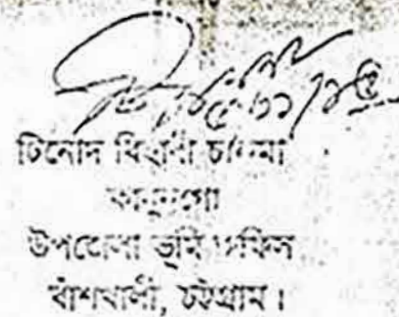 টিনোদ বিহারী চাকমা
কানুনগো
উপজেলা ভূমি অফিস
বাঁশখালী, চট্টগ্রাম।